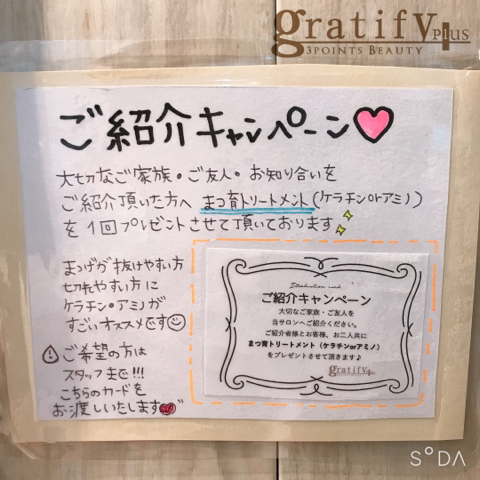 gratify Plus
3POINTS BEAUTY
ご紹介キャンペーン
大切なご家族・ご友人・お知り合いを
ご紹介頂いた方へ まつ育トリートメント(ケラチンorアミノ)
を1回プレゼントさせて頂いております
まつげが抜けやすい方
切れやすい方に
ケラチン・アミノが
すごいオススメです
ご希望の方は
スタッフまで!!!
こちらのカードを
お渡しいたします
Introduction card
ご紹介キャンペーン
大切なご家族・ご友人を
当サロンへご紹介ください。
ご紹介者様とお客様、お二人共に
まつ育トリートメント(ケラチンorアミノ)
をプレゼントさせて頂きます♪
gratify Plus
SODA